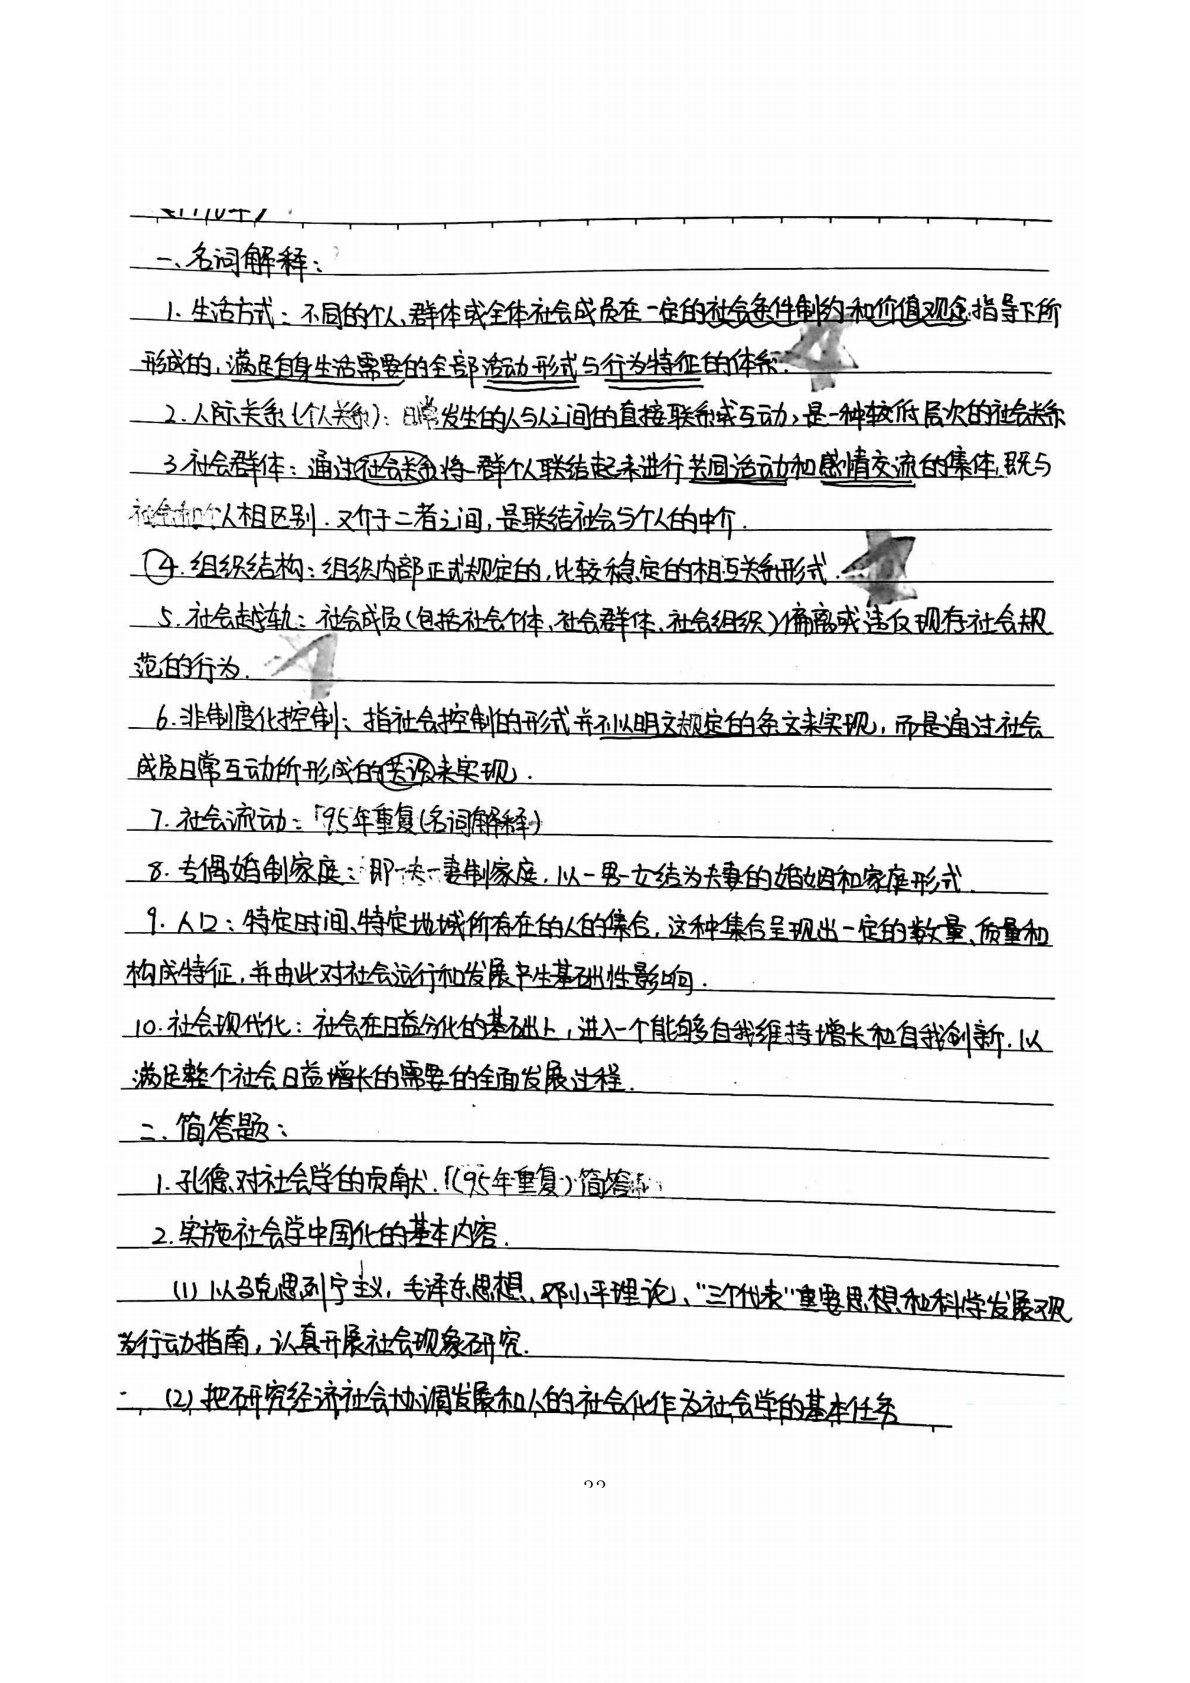 一、名词解释：
1. 生活方式：不同的个人、群体或全体社会成员在一定的社会条件制约和价值观念指导下所
形成的，满足自身生活需要的全部活动形式与行为特征的体系.
2. 人际关系(个人关系)：日常发生的人与人之间的直接联系或互动，是一种较低层次的社会关系
3 社会群体：通过社会关系将一群个人联结起来进行共同活动和感情交流的集体，既与
社会和个人相区别. 又介于二者之间，是联结社会与个人的中介.
④. 组织结构：组织内部正式规定的，比较稳定的相互关系形式.
5. 社会越轨：社会成员(包括社会个体、社会群体、社会组织)偏离或违反现存社会规
范的行为.
6. 非制度化控制：指社会控制的形式并不以明文规定的条文来实现，而是通过社会
成员日常互动所形成的共识来实现.
7. 社会流动：「95年重复(名词解释)
8. 专偶婚制家庭：即一夫一妻制家庭，以一男一女结为夫妻的婚姻和家庭形式.
9. 人口：特定时间、特定地域所存在的人的集合，这种集合呈现出一定的数量、质量和
构成特征，并由此对社会运行和发展产生基础性影响.
10. 社会现代化：社会在日益分化的基础上，进入一个能够自我维持增长和自我创新，以
满足整个社会日益增长的需要的全面发展过程.
二. 简答题：
1. 孔德对社会学的贡献.「(95年重复)简答
2. 实施社会学中国化的基本内容.
(1) 以马克思列宁主义，毛泽东思想、邓小平理论、“三个代表”重要思想和科学发展观
为行动指南，认真开展社会现象研究.
(2) 把研究经济社会协调发展和人的社会化作为社会学的基本任务